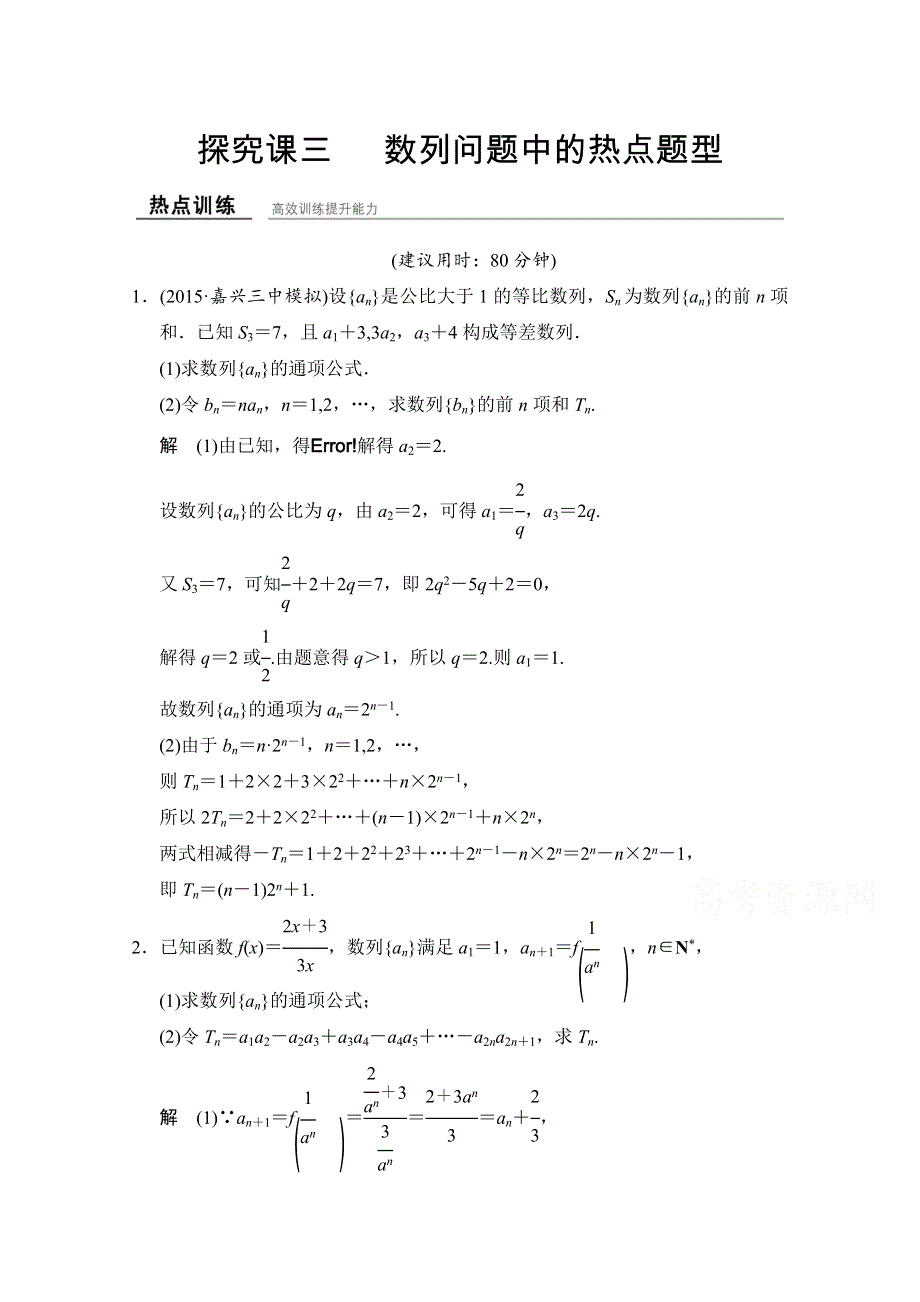 探究课三　数列问题中的热点题型
热点训练　高效训练提升能力
(建议用时：80 分钟)
1．(2015·嘉兴三中模拟)设{aₙ}是公比大于 1 的等比数列，Sₙ为数列{aₙ}的前 n 项
和．已知 S₃＝7，且 a₁＋3,3a₂，a₃＋4 构成等差数列．
(1)求数列{aₙ}的通项公式．
(2)令 bₙ＝naₙ，n＝1,2，…，求数列{bₙ}的前 n 项和 Tₙ.
解　(1)由已知，得Error!解得 a₂＝2.
设数列{aₙ}的公比为 q，由 a₂＝2，可得 a₁＝2/q，a₃＝2q.
又 S₃＝7，可知2/q＋2＋2q＝7，即 2q²－5q＋2＝0，
解得 q＝2 或1/2.由题意得 q＞1，所以 q＝2.则 a₁＝1.
故数列{aₙ}的通项为 aₙ＝2ⁿ⁻¹.
(2)由于 bₙ＝n·2ⁿ⁻¹，n＝1,2，…，
则 Tₙ＝1＋2×2＋3×2²＋…＋n×2ⁿ⁻¹，
所以 2Tₙ＝2＋2×2²＋…＋(n－1)×2ⁿ⁻¹＋n×2ⁿ，
两式相减得－Tₙ＝1＋2＋2²＋2³＋…＋2ⁿ⁻¹－n×2ⁿ＝2ⁿ－n×2ⁿ－1，
即 Tₙ＝(n－1)2ⁿ＋1.
高考资源网
2．已知函数 f(x)＝(2x＋3)/(3x)，数列{aₙ}满足 a₁＝1，aₙ₊₁＝f(1/aⁿ)，n∈N*，
(1)求数列{aₙ}的通项公式；
(2)令 Tₙ＝a₁a₂－a₂a₃＋a₃a₄－a₄a₅＋…－a₂ₙa₂ₙ₊₁，求 Tₙ.
解　(1)∵aₙ₊₁＝f(1/aⁿ)＝(2/aⁿ＋3)/(3/aⁿ)＝(2＋3aⁿ)/3＝aₙ＋2/3，